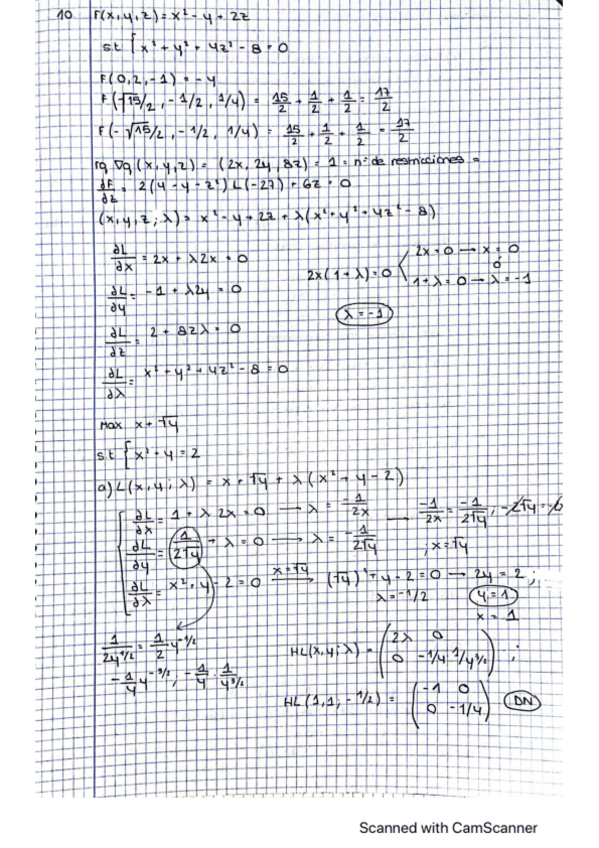 10 F(x,y,z) = x² - y + 2z
s.t { x² + y² + 4z² - 8 = 0
F(0,2,-1) = -4
F(√15/2, -1/2, 1/4) = 15/2 + 1/2 + 1/2 = 17/2
F(-√15/2, -1/2, 1/4) = 15/2 + 1/2 + 1/2 = 17/2
rg ∇g (x,y,z) = (2x, 2y, 8z) = 1 = nº de restricciones =
dF/dz = 2(4-y-z²) L(-27) + 6z = 0
(x,y,z;λ) = x² - y + 2z + λ(x² + y² + 4z² - 8)
∂L/∂x = 2x + λ2x = 0
2x(1+λ) = 0 2x = 0 → x = 0
ó
1+λ = 0 → λ = -1
∂L/∂y = -1 + λ2y = 0
λ = -1
∂L/∂z = 2 + 8zλ = 0
∂L/∂λ = x² + y² + 4z² - 8 = 0
Max x + √y
s.t { x² + y = 2
a) L(x,y;λ) = x + √y + λ(x² + y - 2)
∂L/∂x = 1 + λ2x = 0 → λ = -1/2x
→ -1/2x = -1/2√y ; -2√y =
∂L/∂y = 1/2√y + λ = 0 → λ = -1/2√y
; x = √y
∂L/∂λ = x² + y - 2 = 0 x=√y → (√y)² + y - 2 = 0 → 2y = 2 ;
λ = -1/2 y = 1
x = 1
1/2y^1/2 = 1/2 y^-1/2
-1/4 y^-3/2 ; -1/4 · 1/y^3/2
HL(x,y;λ) = (2λ 0
0 -1/4 1/y^3/2) ;
HL(1,1,-1/2) = (-1 0
0 -1/4) DN
Scanned with CamScanner